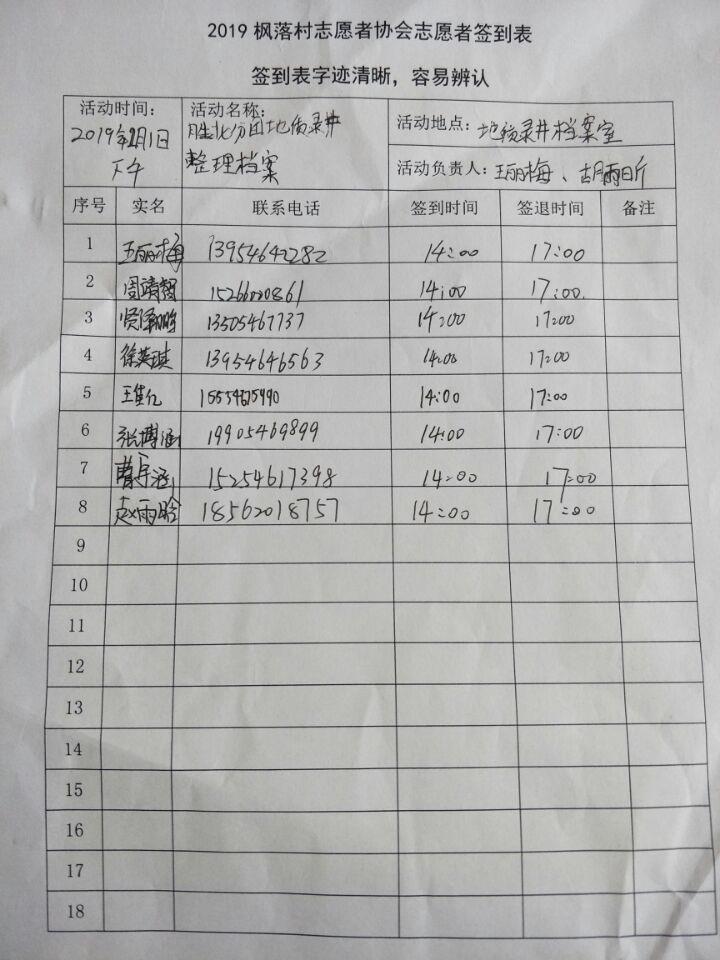 2019 枫落村志愿者协会志愿者签到表
签到表字迹清晰，容易辨认
活动时间：
2019年2月1日
下午
活动名称：
胜北分团地质录井
整理档案
活动地点：地质录井档案室
活动负责人：王丽梅、胡雨昕
序号 实名 联系电话 签到时间 签退时间 备注
1 王丽梅 13954642282 14:00 17:00
2 周靖智 15266020861 14:00 17:00
3 13505467737 14:00 17:00
4 徐英琪 13954646563 14:00 17:00
5 王佳亿 14:00 17:00
6 张博涵 19905469899 14:00 17:00
7 曹宇涵 15254617398 14:00 17:00
8 赵雨晗 18562018757 14:00 17:00
9
10
11
12
13
14
15
16
17
18